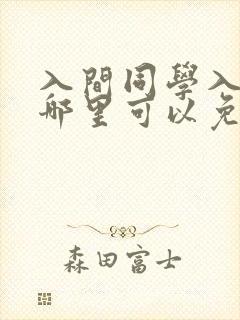 入間同學入
哪里可以免
森田富士